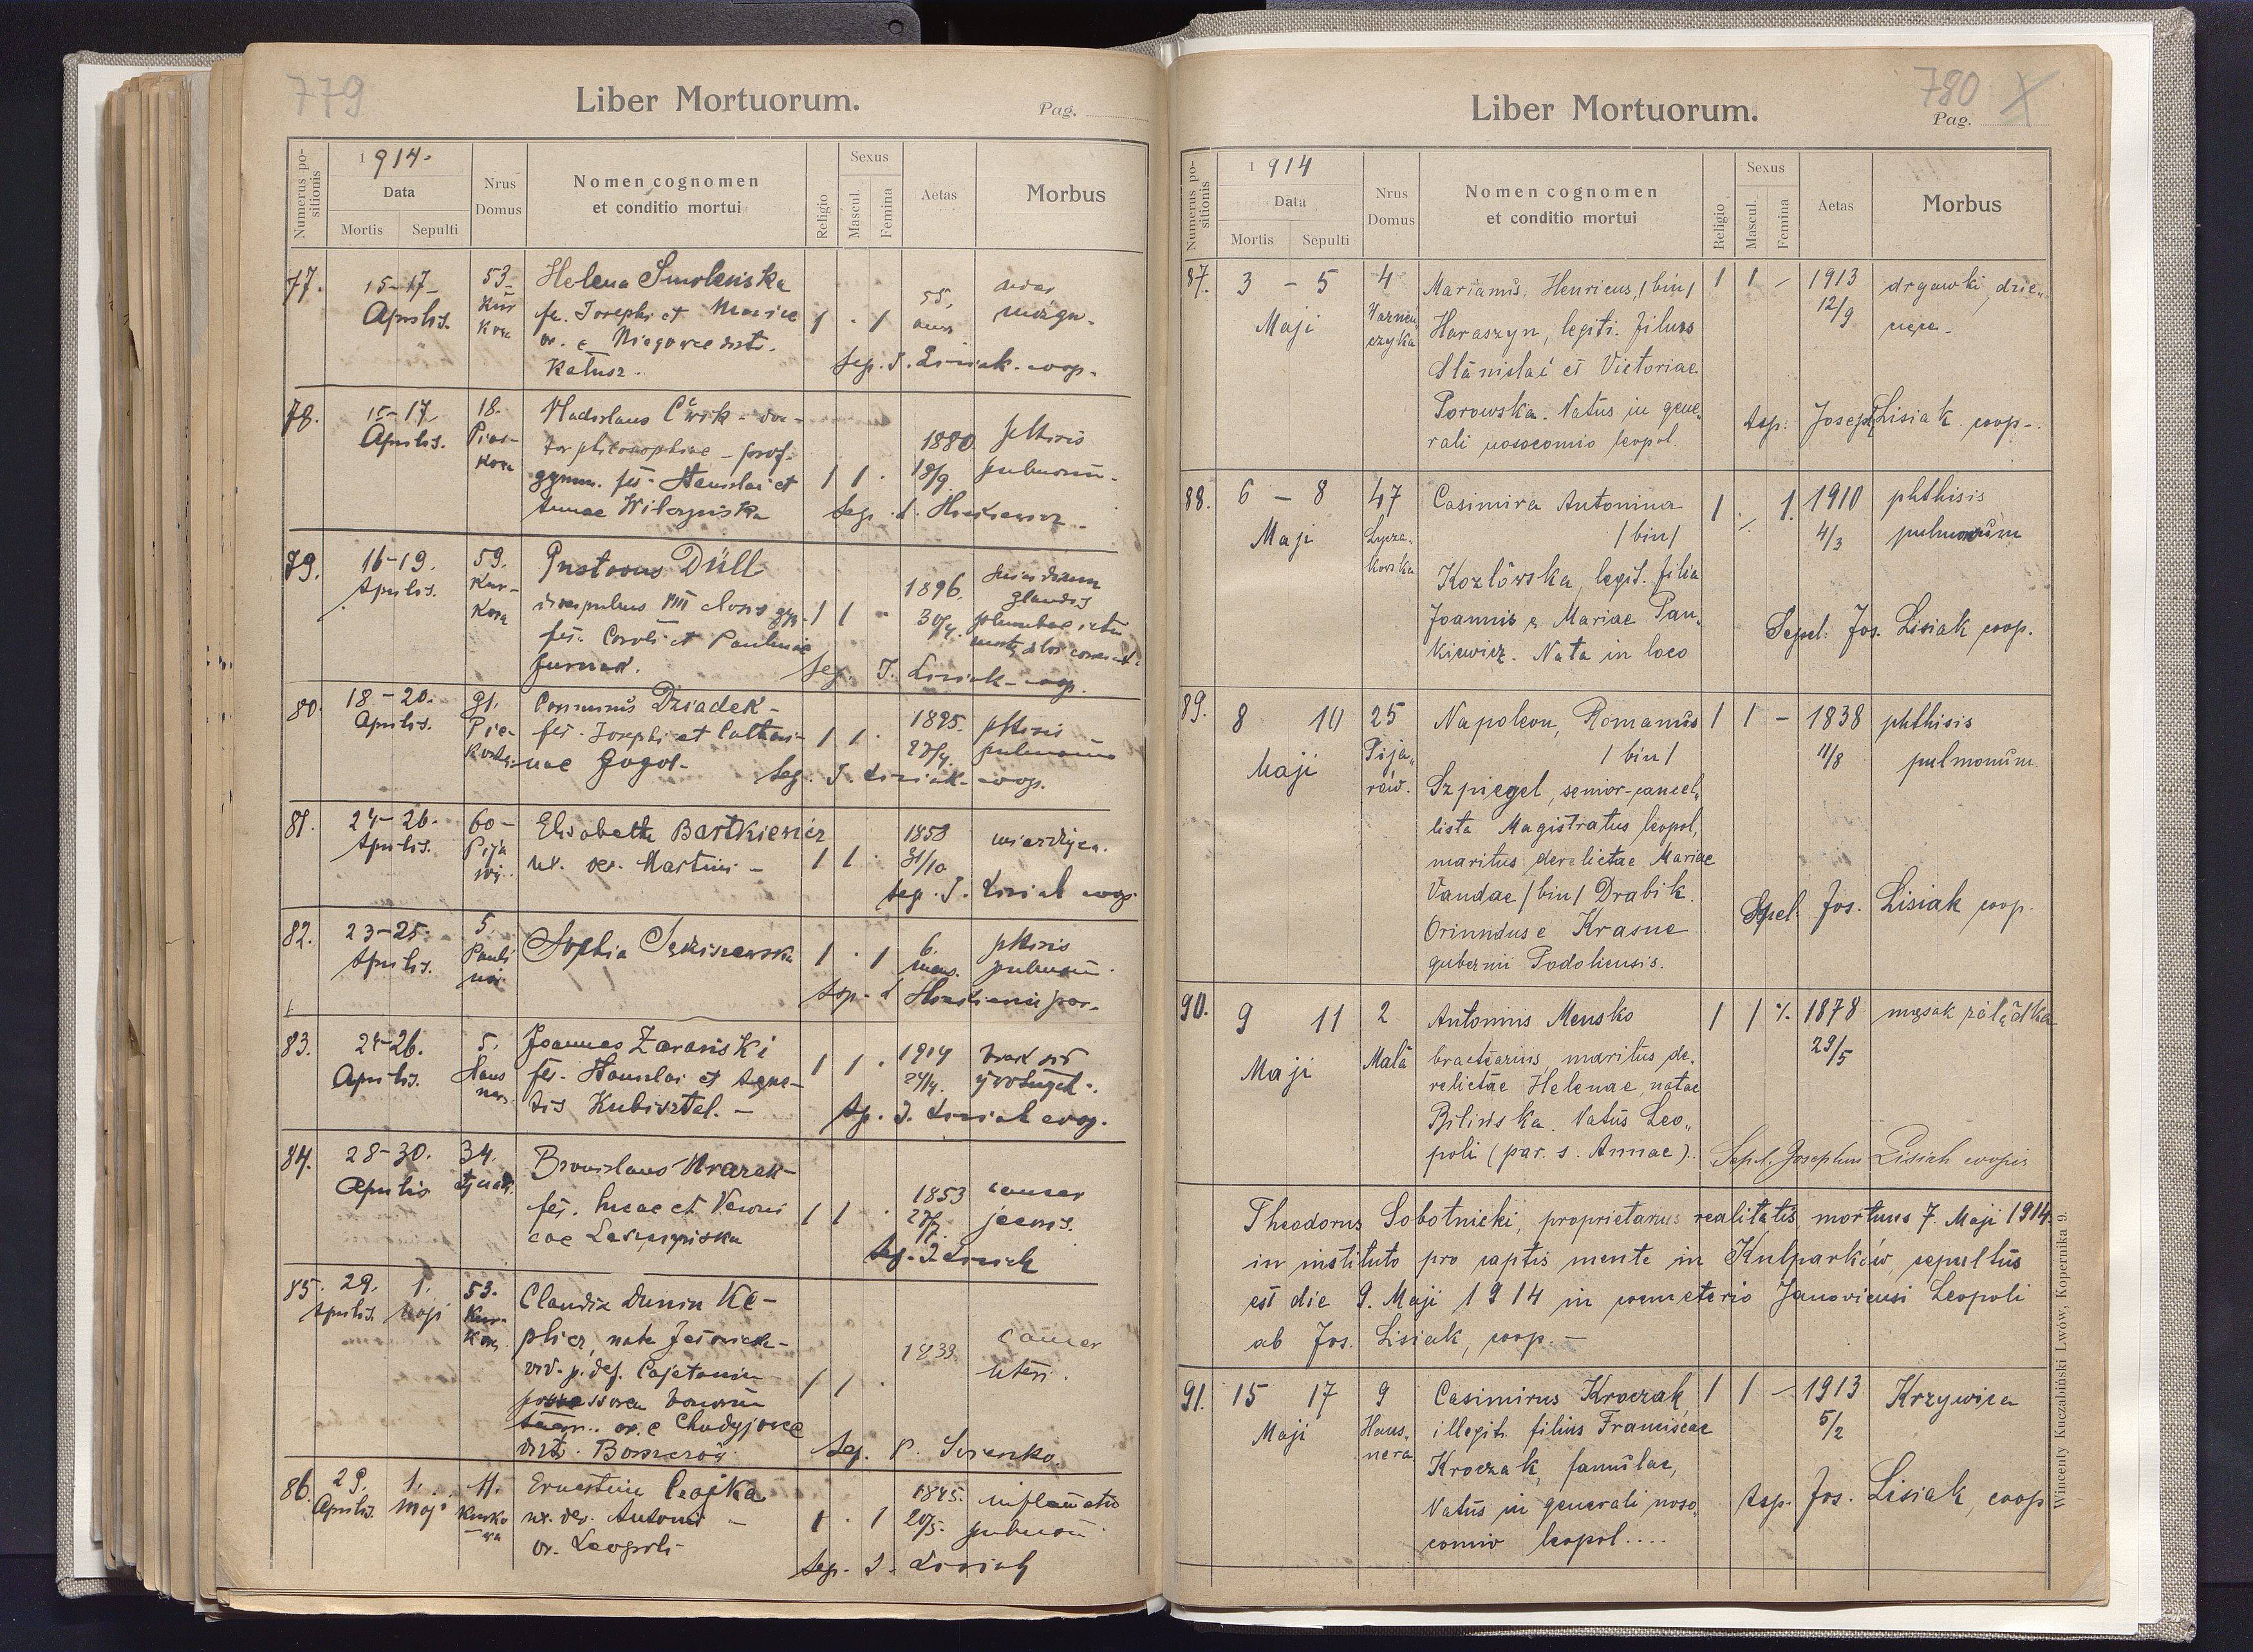 779
Liber Mortuorum.
Pag.
Numerus positionis
1914.
Data
Mortis Sepulti
Nrus Domus
Nomen cognomen
et conditio mortui
Religio
Sexus
Mascul.
Femina
Aetas
Morbus
77. 15-17- 53- Helena Smoleńska
Aprilis. Kur fa. Josephi et Mariae 1 . 1 55.
kowa or. e
Kałusz. Sep. J. Lisiak. coop.
78. 15-17 18. Vladislaus Ćwik - doc-
Aprilis. Pias- tor philosophiae - prof. 1880 phthisis
kowa gymn. fil. Stanislai et 1 1 . 18/9 pulmonum.
Annae Wilczyńska Sep.
79. 16-19. 59. Gustavus Düll
Aprilis. Kur- discipulus VIII classis gy. 1 1 - 1896.
kowa fil. Caroli et Paulinae 30/4.
Sep. J. Lisiak coop.
80. 18-20. 91. Dziadek-
Aprilis. Pie- fil. Josephi et Cathari- 1 1 . 1895. phthisis
nae Gogol- 27/4. pulmonum
Sep. J. Lisiak. coop.
81. 24-26. 60- Elisabeth Bartkiewicz 1858
Aprilis. Pija ux. Martini - 1 1 . 31/10
Sep. J. Lisiak coop.
82. 23-25. 5. Sophia 1 . 1 6. phthisis
Aprilis. Pauli mens. pulmonum.
83. 24-26. 5. Joannes Zarański 1 1 . 1914 brak sił
Aprilis. Haus fil. Stanislai et Agne- 24/4. żywotnych.
ner. tis Kubisztal. - Sep. J. Lisiak coop.
84. 28-30. 34. Bronislaus
Aprilis fil. Lucae et Veroni 1 1 . 1853 cancer
cae 27/7.
Sep. J. Lisiak
85. 29. 1. 53. Claudia Dunin Ke-
Aprilis. Maji Kur- plicz, nata
kow. vid. p. def. Cajetanim 1 1 . 1839 Cancer
uteri.
or. e
Sep. P.
86. 29. 1. 11. Ernestina Czajka 1845.
Aprilis. Maji Kurko ux. Antonii - 1 . 1 20/5.
wa or. Leopoli
Sep. J. Lisiak
780 X
Liber Mortuorum.
Pag.
Numerus positionis
1914
Data
Mortis Sepulti
Nrus Domus
Nomen cognomen
et conditio mortui
Religio
Sexus
Mascul.
Femina
Aetas
Morbus
87. 3 - 5 4 Marianus, Henricus, /bin/ 1 1 - 1913 drgawki dzie„
Maji Warneń„ Haraszyn, legiti. filius 12/9 cięce-
czyka Stanislai et Victoriae
Porowska. Natus in gene„ Asp: Joseph Lisiak. coop-.
rali nosocomio leopol.
88. 6 - 8 47 Casimira Antonina 1 1. 1910 phthisis
Maji Łycza„ /bin/ 4/3 pulmonum
kowska Kozłowska, legit. filia
Joannis & Mariae Pan„ Sepel: Jos. Lisiak coop.
kiewicz. Nata in loco
89. 8 10 25 Napoleon, Romanus 1 1 - 1838 phthisis
Maji Pija„ /bin/ 11/8 pulmonum.
rów. Szpiegel, senior-cancel„
lista Magistratus leopol,
maritus derelictae Mariae
Vandae /bin/ Drabik. Sepel. Jos. Lisiak coop.
Oriundus e Krasne
gubernii Podoliensis.
90. 9 11 2 Antonius Mensko 1 1 ./. 1878 mięsak żołądka
Maji Mała maritus de„ 29/5
relictae Helenae, natae
Bilińska. Natus Leo„
poli (par. s. Annae). Sepel. Josephus Lisiak cooper
Theodorus Sobotnicki, proprietarius realitatis, mortuus 7. Maji 1914.
in instituto pro captis mente in Kulparków, sepultus
est die 9. Maji 1914 in coemeterio Janoviensi Leopoli
ab Jos. Lisiak, coop. -
91. 15 17 9 Casimirus Kroczak 1 1 - 1913 Krzywica
Maji Haus„ illegit. filius Franciscae 5/2
nera Kroczak, famulae,
Natus in generali noso„ Asp. Jos. Lisiak, coop
comio leopol....
Wincenty Kuczabiński Lwów, Kopernika 9.